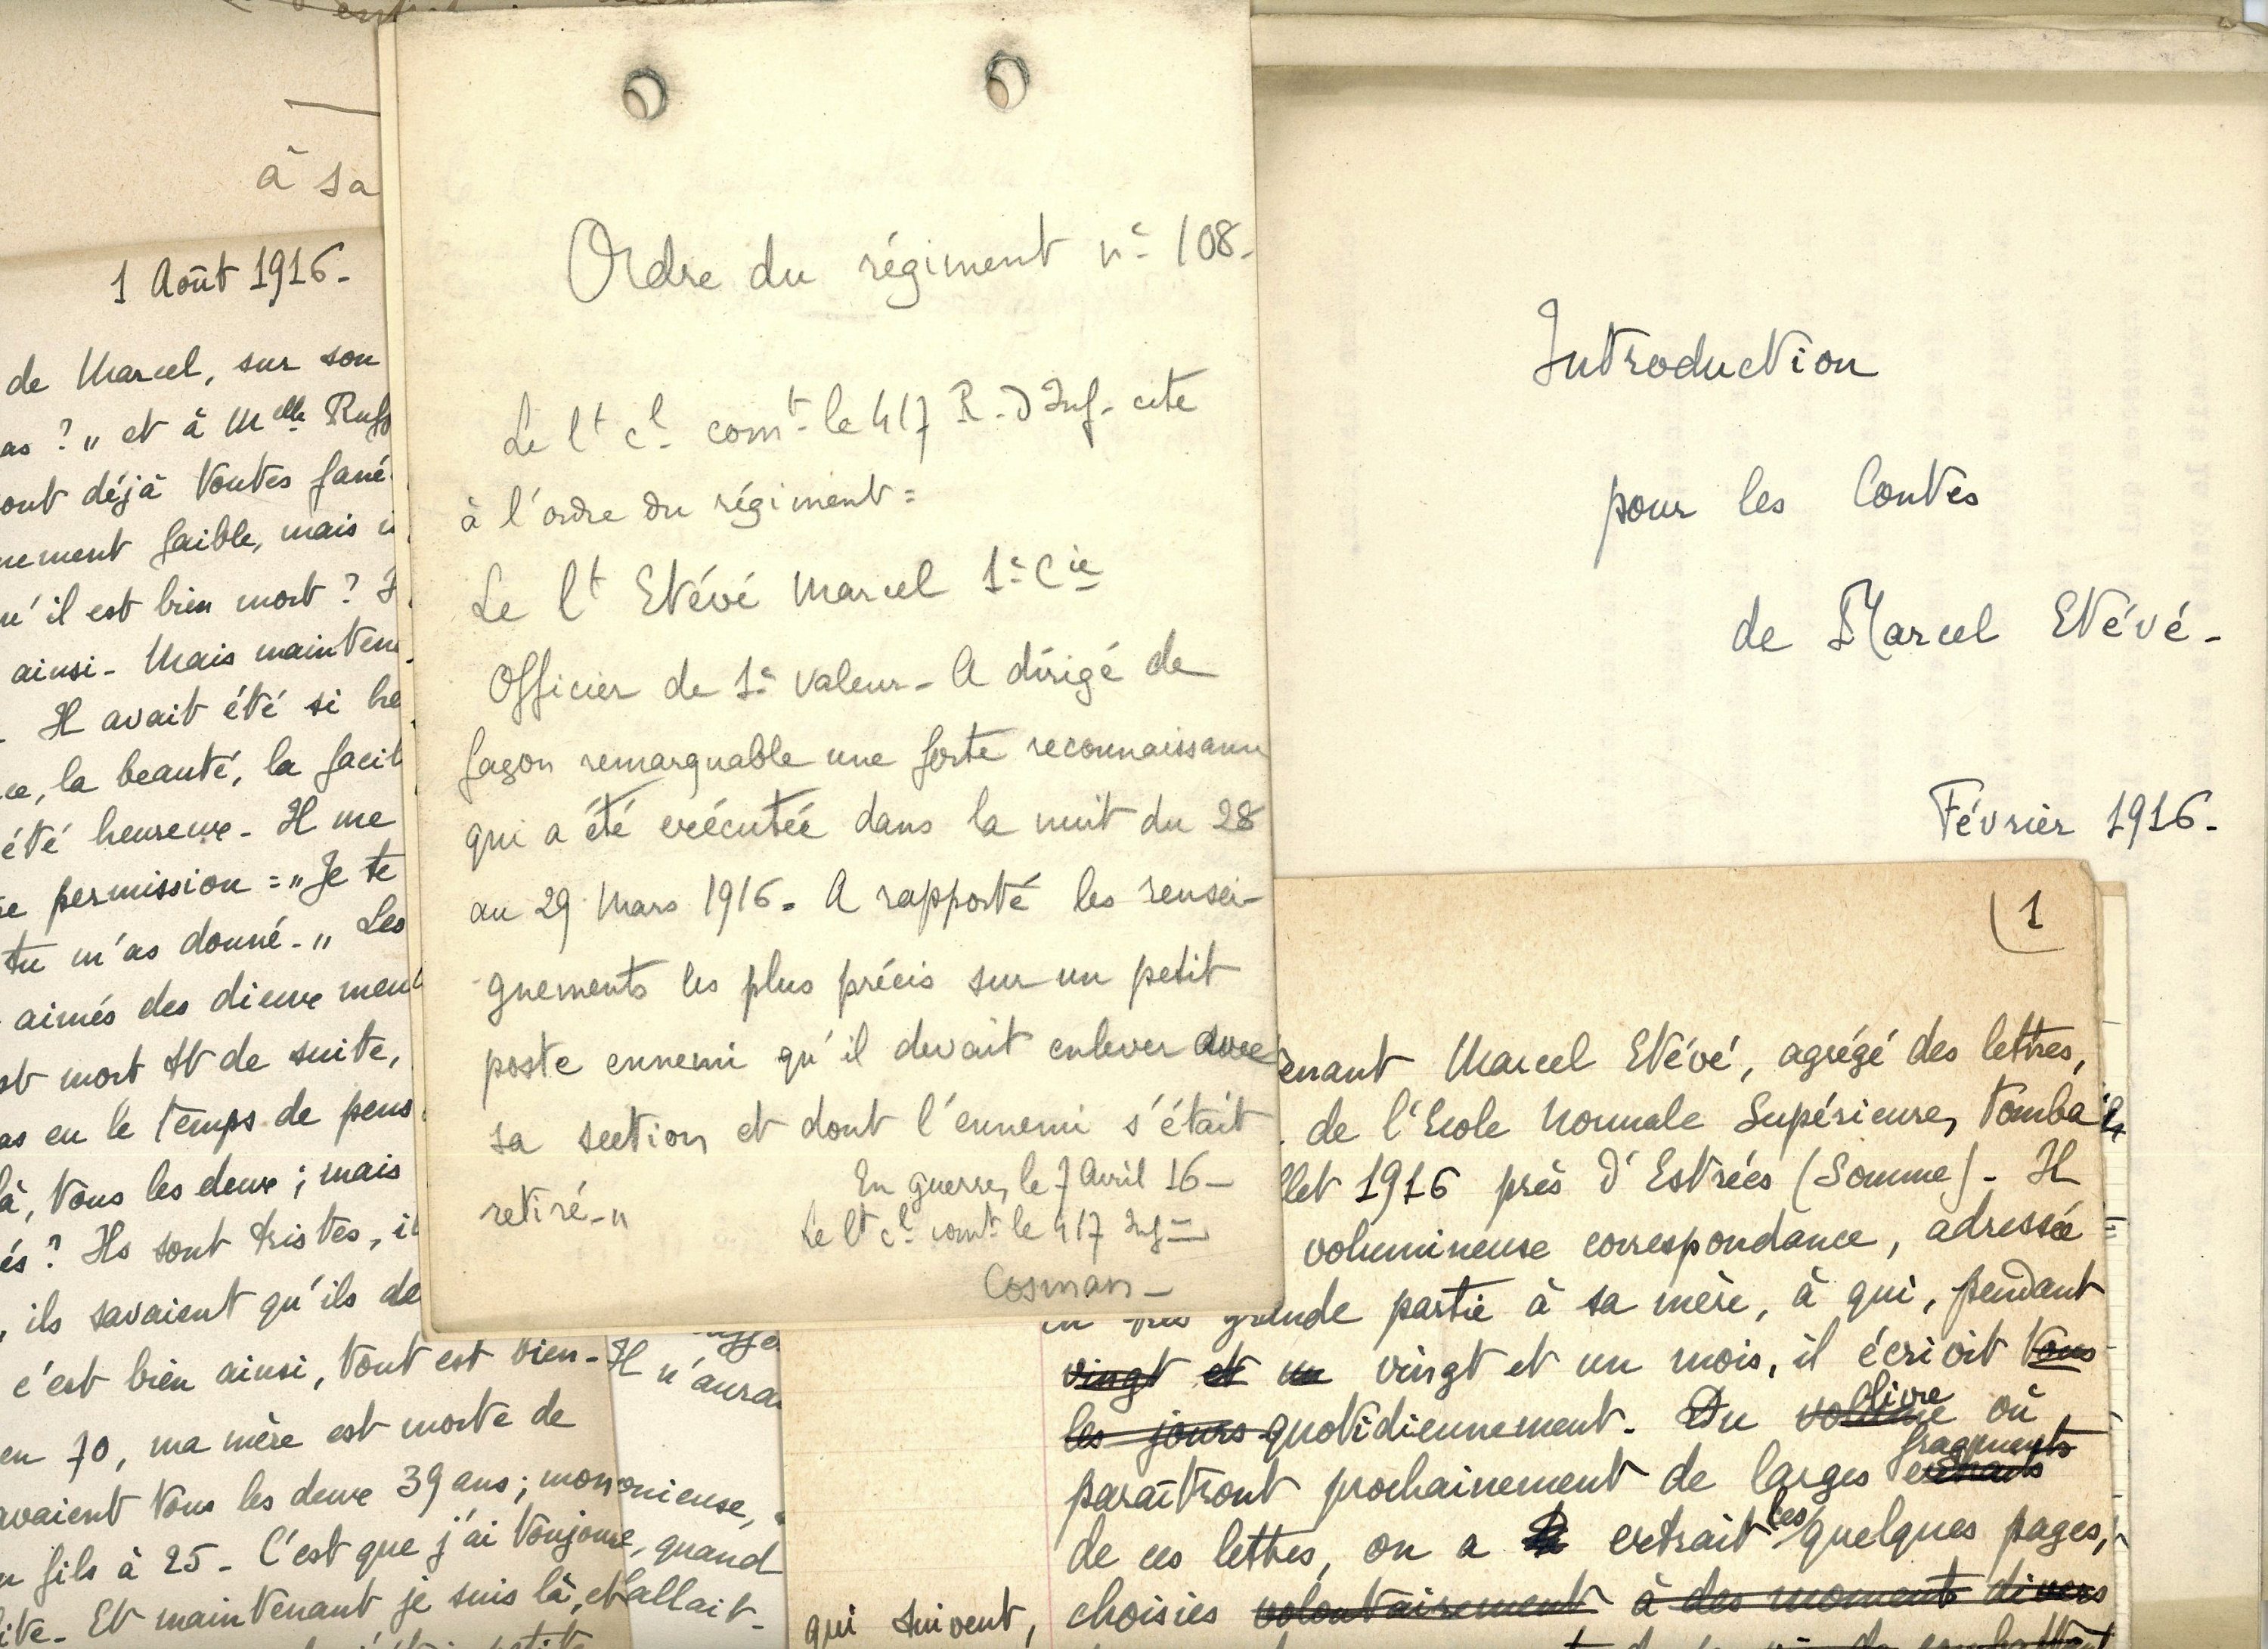 à sa
1 Août 1916-
de Marcel, sur son
as ? " et à Melle
ont déjà toutes fané
nement faible, mais
n'il est bien mort ?
ainsi- Mais mainten
- Il avait été si he
ce, la beauté, la facil
été heureux- Il me
permission = "Je te
tu m'as donné-" Les
aimés des dieux meu
st mort tt de suite,
as eu le temps de pens
là, tous les deux ; mais
és ? Ils sont tristes, il
, ils savaient qu'ils de
c'est bien ainsi, tout est bien-
en 70, ma mère est morte de
avaient tous les deux 39 ans ; mon
fils à 25- C'est que j'ai toujours
ite- Et maintenant je suis là, et
Il n'aura
onieuse,
, quand
fallait-
Ordre du régiment n° 108-
Le lt cl comt le 417 R. d'Inf. cite
à l'ordre du régiment =
Le lt Etévé Marcel 1e Cie
Officier de 1e valeur- A dirigé de
façon remarquable une forte reconnaissance
qui a été exécutée dans la nuit du 28
au 29 Mars 1916- A rapporté les rensei-
gnements les plus précis sur un petit
poste ennemi qu'il devait enlever avec
sa section et dont l'ennemi s'était
retiré-"
En guerre, le 7 Avril 16-
Le lt cl comt le 417 Inf
Cosman-
Introduction
pour les Contes
de Marcel Etévé-
Février 1916-
1
enant Marcel Etévé, agrégé des lettres,
de l'Ecole Normale Supérieure, tomba
llet 1916 près d'Estrées (Somme)- Il
volumineuse correspondance, adressée
en très grande partie à sa mère, à qui, pendant
vingt et un vingt et un mois, il écrivit tous
les jours quotidiennement. Du volume livre où
paraîtront prochainement de larges extraits fragments
de ces lettres, on a extrait les quelques pages,
qui suivent, choisies volontairement à des moments divers